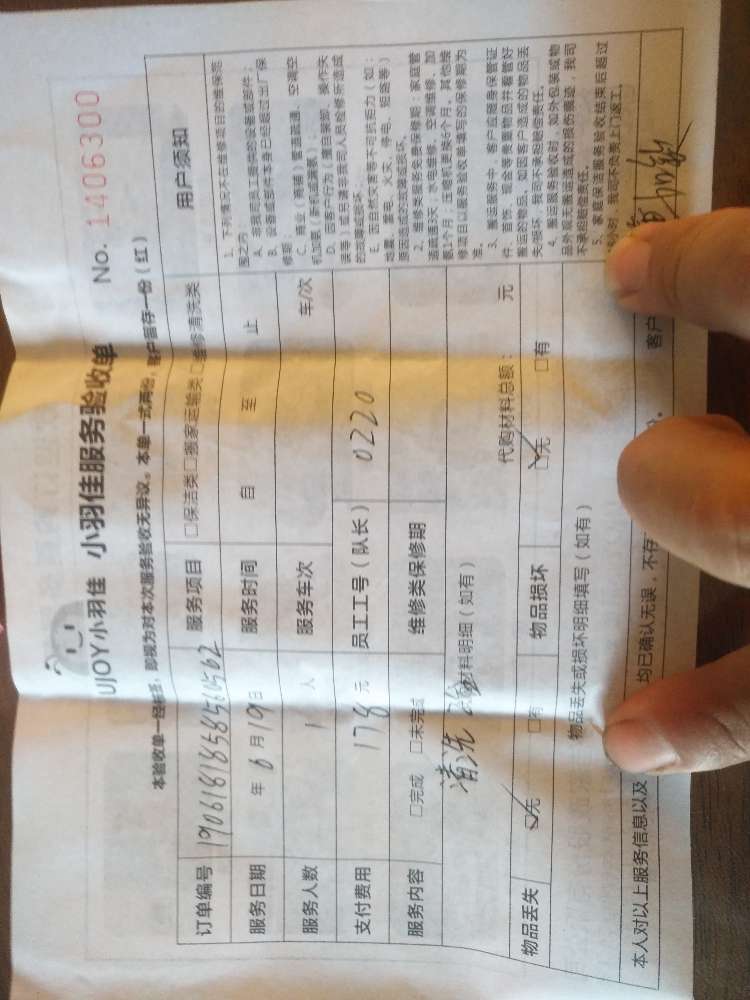 UJOY小羽佳 小羽佳服务验收单 No. 1406300
本验收单一经签名，即视为对本次服务验收无异议。本单一式两份，客户留存一份（红）
订单编号 1906181858510562 服务项目 □保洁类□搬家运输类□维修清洗类
服务日期 年 6 月 19 日 服务时间 自 至 止
服务人数 1 人 服务车次 车/次
支付费用 178 元 员工工号（队长） 0220
服务内容 □完成 □未完成 维修类保修期
清洗 材料明细（如有） 代购材料总额： 元
物品丢失 ☑无 □有 物品损坏 ☑无 □有
物品丢失或损坏明细填写（如有）
本人对以上服务信息以及 均已确认无误，不存 客户
用户须知
1、下列情况不在维修项目的维保范
围之内：
A、非我司员工提供的设备或部件；
B、设备或部件本身已经超过出厂保
修期；
C、商业（商铺）管道疏通、空调空
机加氟（新机或漏氟）；
D、因客户行为（擅自装卸、操作失
误等）或后请非我司人员检修所造成
的故障或损坏；
E、因自然灾害等不可抗拒力（如：
地震、雷电、火灾、停电、短路等）
原因造成的故障或损坏。
2、维修类服务免费保修期：家庭管
道疏通5天，水电维修、空调维修、加
氟1个月，压缩机更换6个月，其他维
修项目以服务验收单填写的保修期为
准。
3、搬运服务中，客户应随身保管证
件、首饰、现金等贵重物品并看管好
搬运的物品，如因客户造成的物品丢
失/损坏，我司不承担赔偿责任。
4、搬运服务验收时，如外包装或物
品外观无搬运造成的损伤痕迹，我司
不承担赔偿责任。
5、家庭保洁服务验收结束后超过
小时，我司不负责上门返工。